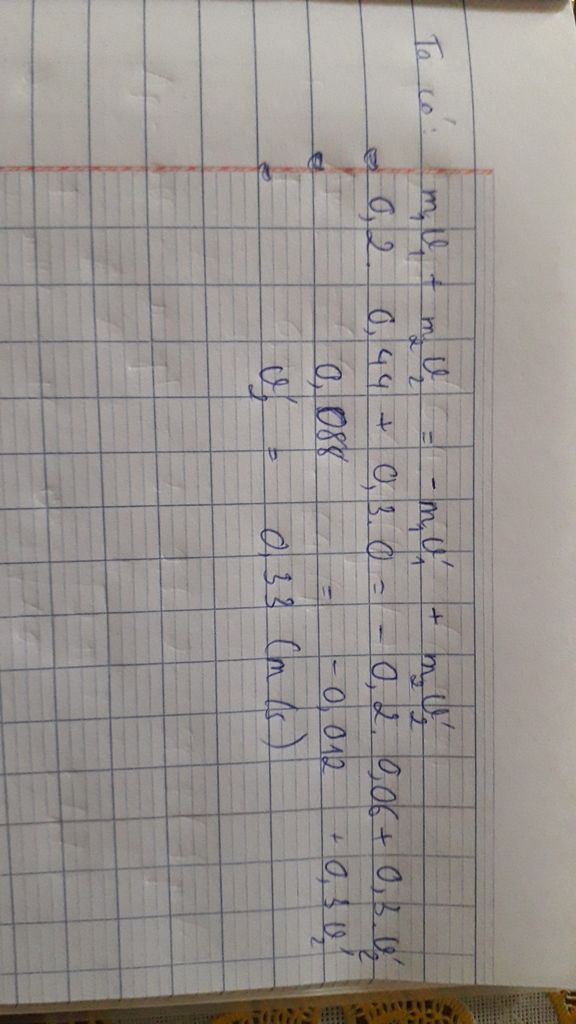 Ta có: m₁v₁ + m₂v₂ = -m₁v₁' + m₂v₂'
0,2. 0,44 + 0,3.0 = - 0,2. 0,06 + 0,3.v₂'
0,088 = -0,012 + 0,3v₂'
v₂' = 0,33 (m/s)